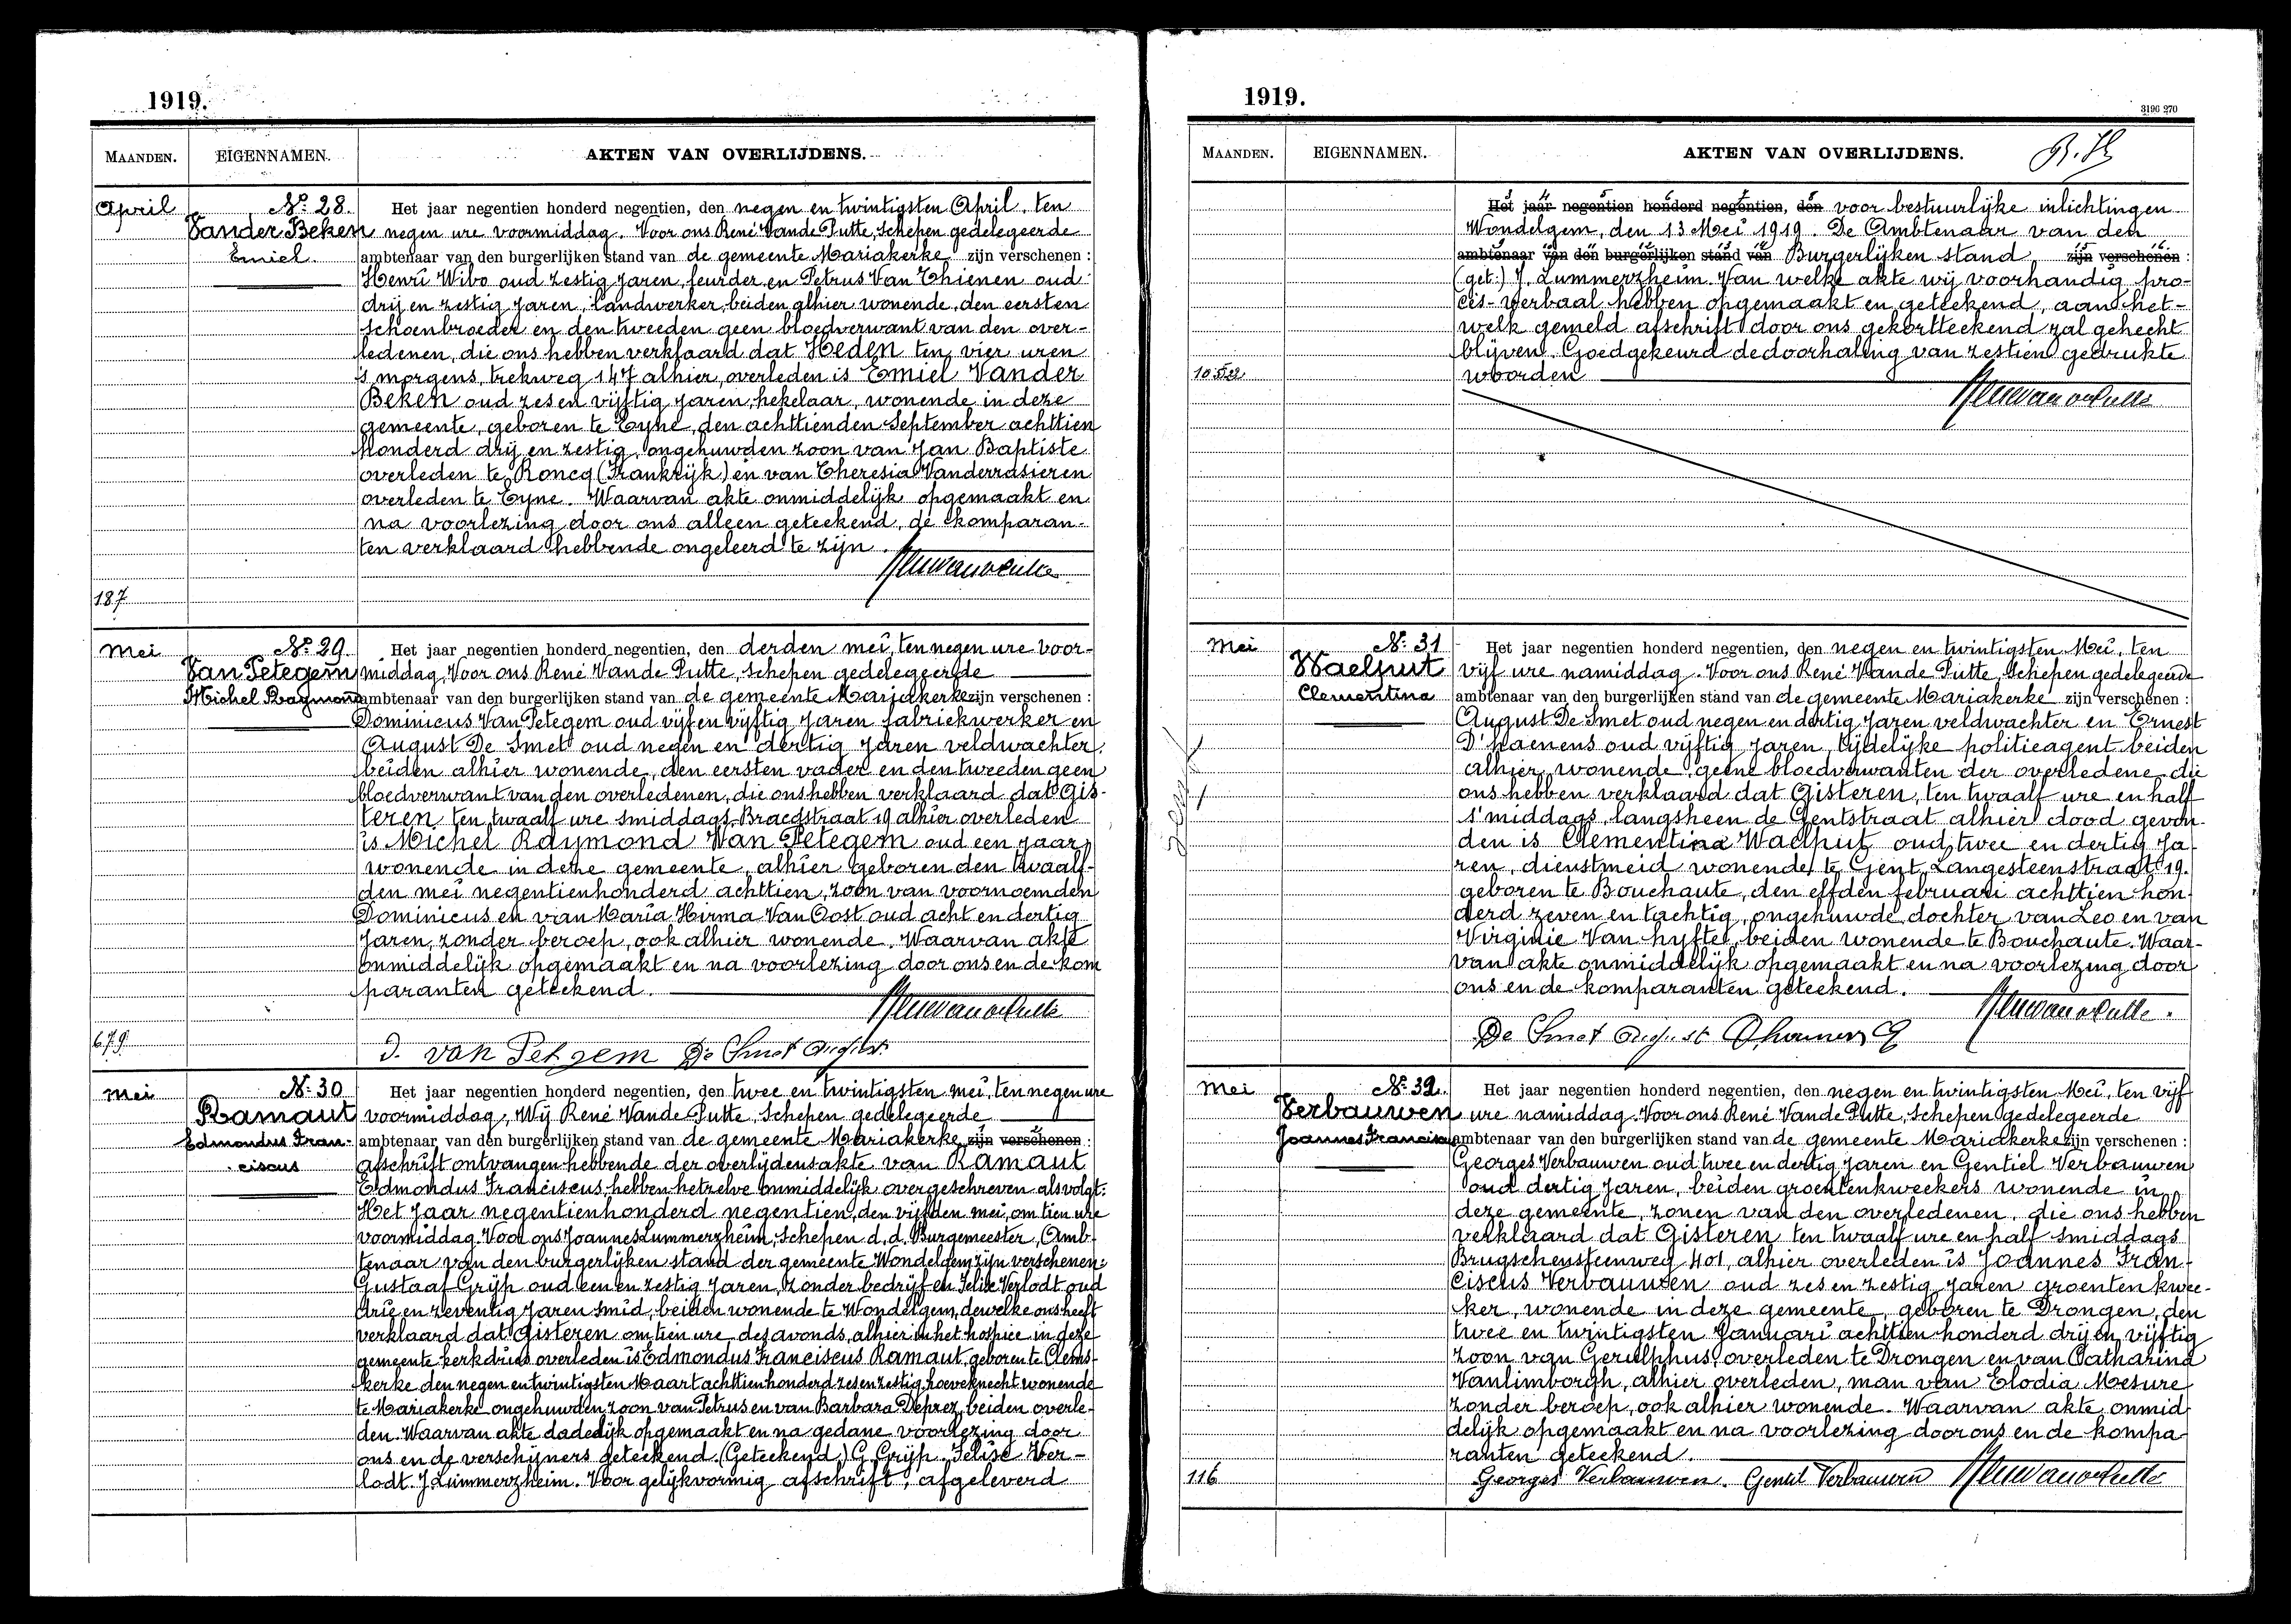 1919.
MAANDEN. EIGENNAMEN. AKTEN VAN OVERLIJDENS.
April No. 28. Het jaar negentien honderd negentien, den negen en twintigsten April, ten
Vander Beken negen ure voormiddag. Voor ons René Vande Putte, Schepen gedelegeerde
Emiel. ambtenaar van den burgerlijken stand van de gemeente Mariakerke zijn verschenen :
Henri Wibo oud zestig jaren, leurder en Petrus Van Thienen oud
drij en zestig jaren, landwerker, beiden alhier wonende, den eersten
schoenbroeder en den tweeden geen bloedverwant van den over-
ledenen, die ons hebben verklaard dat Heden ten vier uren
's morgens, trekweg 147 alhier, overleden is Emiel Vander
Beken oud zes en vijftig jaren, hekelaar, wonende in deze
gemeente, geboren te Eyne, den achttienden September achttien
honderd drij en zestig, ongehuwden zoon van Jan Baptiste
overleden te Roncq (Frankrijk) en van Theresia Vanderrasieren
overleden te Eyne. Waarvan akte onmiddelijk opgemaakt en
na voorlezing door ons alleen geteekend, de komparan-
ten verklaard hebbende ongeleerd te zijn.
187
Mei No. 29. Het jaar negentien honderd negentien, den derden mei, ten negen ure voor-
Van Petegem middag, Voor ons René Vande Putte, Schepen gedelegeerde
Michel Raymond ambtenaar van den burgerlijken stand van de gemeente Mariakerke zijn verschenen :
Dominicus Van Petegem oud vijf en vijftig jaren fabriekwerker en
August De Smet oud negen en dertig jaren veldwachter,
beiden alhier wonende, den eersten vader en den tweeden geen
bloedverwant van den overledenen, die ons hebben verklaard dat Gis-
teren ten twaalf ure smiddags Braedstraat 19 alhier overleden
is Michel Raymond Van Petegem oud een jaar,
wonende in deze gemeente, alhier geboren den twaalf-
den mei negentienhonderd achttien, zoon van voornoemden
Dominicus en van Maria Hirma Van Oost oud acht en dertig
jaren, zonder beroep, ook alhier wonende. Waarvan akte
onmiddelijk opgemaakt en na voorlezing door ons en de kom
paranten geteekend.
679
D. van Petegem De Smet August
Mei No. 30 Het jaar negentien honderd negentien, den twee en twintigsten mei, ten negen ure
Ramaut voormiddag, Wij René Vande Putte, Schepen gedelegeerde
Edmondus Fran- ambtenaar van den burgerlijken stand van de gemeente Mariakerke zijn verschenen :
ciscus afschrift ontvangen hebbende der overlijdensakte van Ramaut
Edmondus Franciscus, hebben hetzelve onmiddelijk overgeschreven als volgt:
Het Jaar negentienhonderd negentien, den vijfden mei, om tien ure
voormiddag. Voor ons Joannes Lummerzheim, Schepen d. d. Burgemeester, Amb-
tenaar van den burgerlijken stand der gemeente Wondelgem zijn verschenen:
Gustaaf Grijp oud een en zestig jaren, zonder bedrijf en Felix Verlodt oud
drie en zeventig jaren smid, beiden wonende te Wondelgem, dewelke ons heeft
verklaard dat Gisteren om tien ure des avonds, alhier in het hospice in deze
gemeente kerkdries overleden is Edmondus Franciscus Ramaut, geboren te Clems-
kerke den negen en twintigsten Maart achttienhonderd zes en zestig, hoeveknecht wonende
te Mariakerke ongehuwden zoon van Petrus en van Barbara Deprez, beiden overle-
den. Waarvan akte dadelijk opgemaakt en na gedane voorlezing door
ons en de verschijners geteekend. (Geteekend) G. Grijp. Felise Ver-
lodt. J. Lummerzheim. Voor gelijkvormig afschrift, afgeleverd
1919.
3196 270
MAANDEN. EIGENNAMEN. AKTEN VAN OVERLIJDENS.
Het jaar negentien honderd negentien, den voor bestuurlijke inlichtingen
Wondelgem, den 13 Mei 1919. De Ambtenaar van den
ambtenaar van den burgerlijken stand van Burgerlijken stand zijn verschenen :
(get:) J. Lummerzheim. Van welke akte wij voorhandig pro-
ces-verbaal hebben opgemaakt en geteekend, aan het-
welk gemeld afschrift door ons gekortteekend zal gehecht
blijven. Goedgekeurd de doorhaling van zestien gedrukte
woorden
Mei No. 31 Het jaar negentien honderd negentien, den negen en twintigsten Mei, ten
Waelput vijf ure namiddag. Voor ons René Vande Putte, Schepen gedelegeerde
Clementina ambtenaar van den burgerlijken stand van de gemeente Mariakerke zijn verschenen :
August De Smet oud negen en dertig jaren veldwachter en Ernest
D'haenens oud vijftig jaren, tijdelijke politieagent beiden
alhier wonende, geene bloedverwanten der overledene, die
ons hebben verklaard dat Gisteren, ten twaalf ure en half
s'middags, langsheen de Gentstraat alhier dood gevon-
den is Clementina Waelput oud twee en dertig Ja-
ren, dienstmeid wonende te Gent, Langesteenstraat 19.
geboren te Bouchaute, den elfden februari achttien hon-
derd zeven en tachtig, ongehuwde dochter van Leo en van
Virginie Van hyfte, beiden wonende te Bouchaute. Waar-
van akte onmiddelijk opgemaakt en na voorlezing door
ons en de komparanten geteekend.
De Smet August
Mei No. 32. Het jaar negentien honderd negentien, den negen en twintigsten Mei, ten vijf
Verbauwen ure namiddag. Voor ons René Vande Putte, Schepen gedelegeerde
Joannes Franciscus ambtenaar van den burgerlijken stand van de gemeente Mariakerke zijn verschenen :
Georges Verbauwen oud twee en dertig jaren en Gentiel Verbauwen
oud dertig jaren, beiden groentenkweekers wonende in
deze gemeente, zonen van den overledenen, die ons hebben
verklaard dat Gisteren ten twaalf ure en half smiddags
Brugschensteenweg 401, alhier overleden is Joannes Fran-
ciscus Verbauwen oud zes en zestig jaren groentenkwee-
ker, wonende in deze gemeente, geboren te Drongen, den
twee en twintigsten Januari achttien honderd drij en vijftig
zoon van Gerulphus, overleden te Drongen en van Catharina
Vanlimborgh, alhier overleden, man van Elodia Mesure
zonder beroep, ook alhier wonende. Waarvan akte onmid
delijk opgemaakt en na voorlezing door ons en de kompa
ranten geteekend.
116
Georges Verbauwen. Gentil Verbauwen